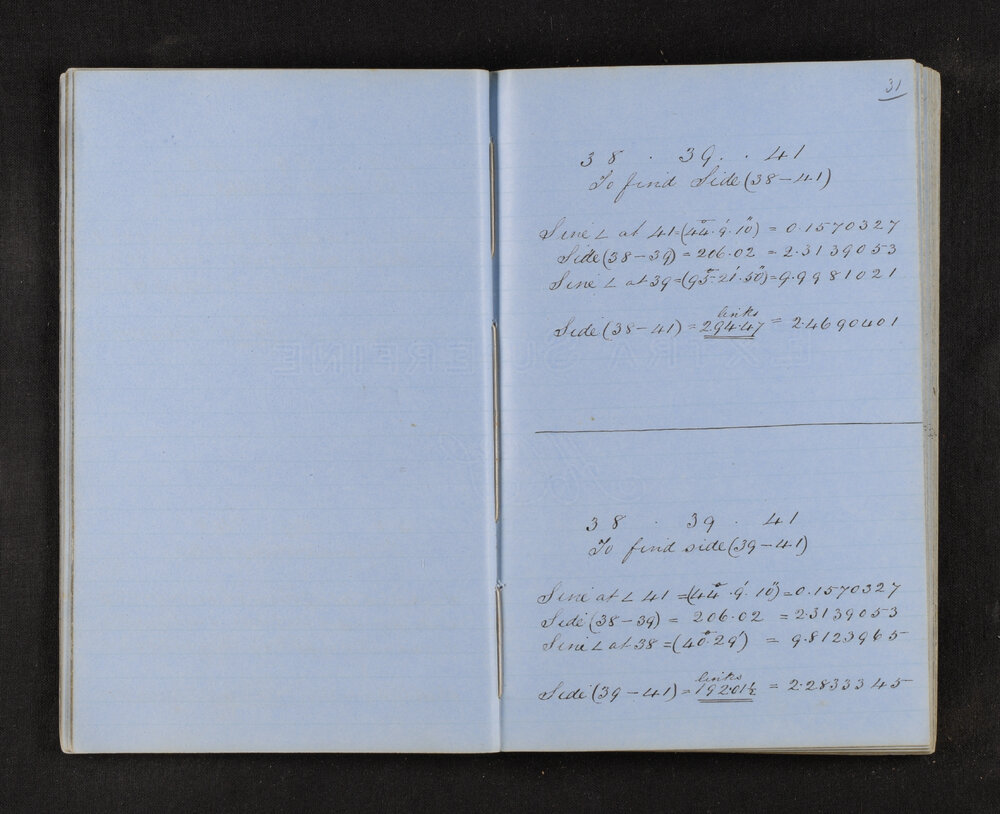 31
38 . 39 . . 41
To find Side (38-41)
Sine ∠ at 41 = (44°. 9'. 10") = 0.1570327
Side (38-39) = 206.02 = 2.3139053
Sine ∠ at 39 = (95°. 21'. 50") = 9.9981021
links
Side (38-41) = 294.47 = 2.4690401
EXTRA SUPERFINE
38 . 39 . 41
To find side (39-41)
Sine at ∠ 41 = (44°. 9'. 10") = 0.1570327
Side (38-39) = 206.02 = 2.3139053
Sine ∠ at 38 = (40°. 29') = 9.8123965
links
Side (39-41) = 192.01½ = 2.2833345